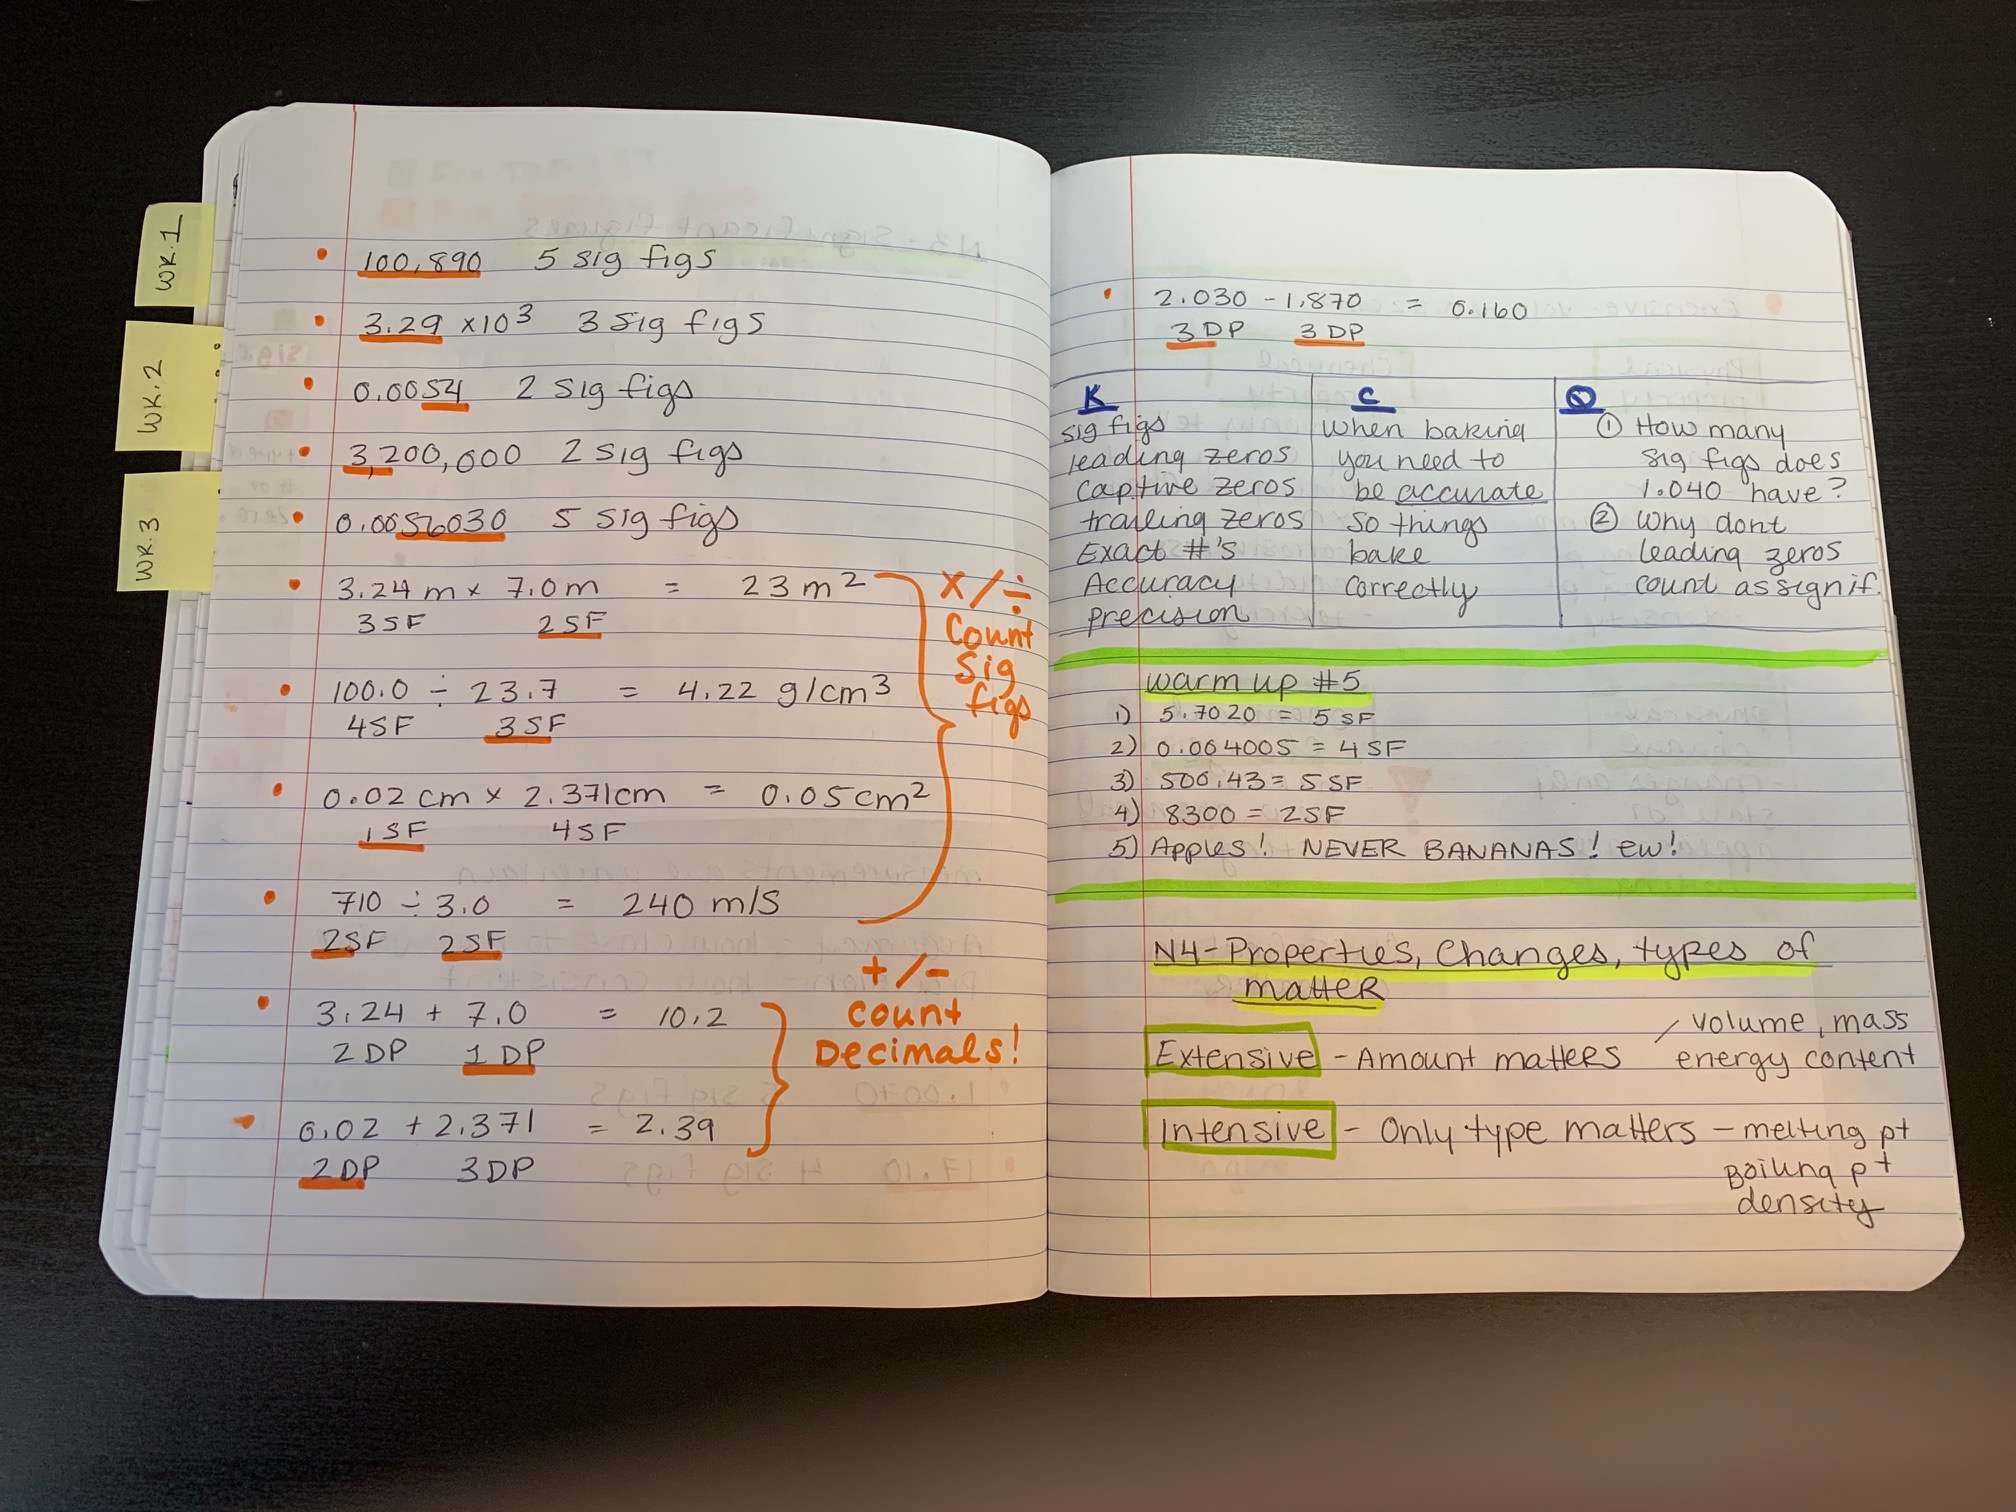 WK.1
WK.2
WK.3
100,890 5 sig figs
3.29 x10³ 3 sig figs
0.0054 2 sig figs
3,200,000 2 sig figs
0.0056030 5 sig figs
3.24 m x 7.0 m = 23 m²
3SF 2SF
100.0 ÷ 23.7 = 4.22 g/cm³
4SF 3SF
0.02 cm x 2.371cm = 0.05 cm²
1SF 4SF
710 ÷ 3.0 = 240 m/s
2SF 2SF
x/÷
Count
Sig
figs
3.24 + 7.0 = 10.2
2 DP 1 DP
0.02 + 2.371 = 2.39
2DP 3DP
+/-
count
Decimals!
2.030 - 1.870 = 0.160
3 DP 3 DP
K
sig figs
leading zeros
captive zeros
trailing zeros
Exact #'s
Accuracy
precision
C
when baking
you need to
be accurate
so things
bake
correctly
Q
① How many
sig figs does
1.040 have?
② Why dont
leading zeros
count as signif.
warm up #5
1) 5.7020 = 5 SF
2) 0.004005 = 4 SF
3) 500.43 = 5 SF
4) 8300 = 2SF
5) Apples! NEVER BANANAS! ew!
N4-Properties, Changes, types of
matter
Extensive - Amount matters / volume, mass
energy content
Intensive - Only type matters - melting pt
Boiling pt
density